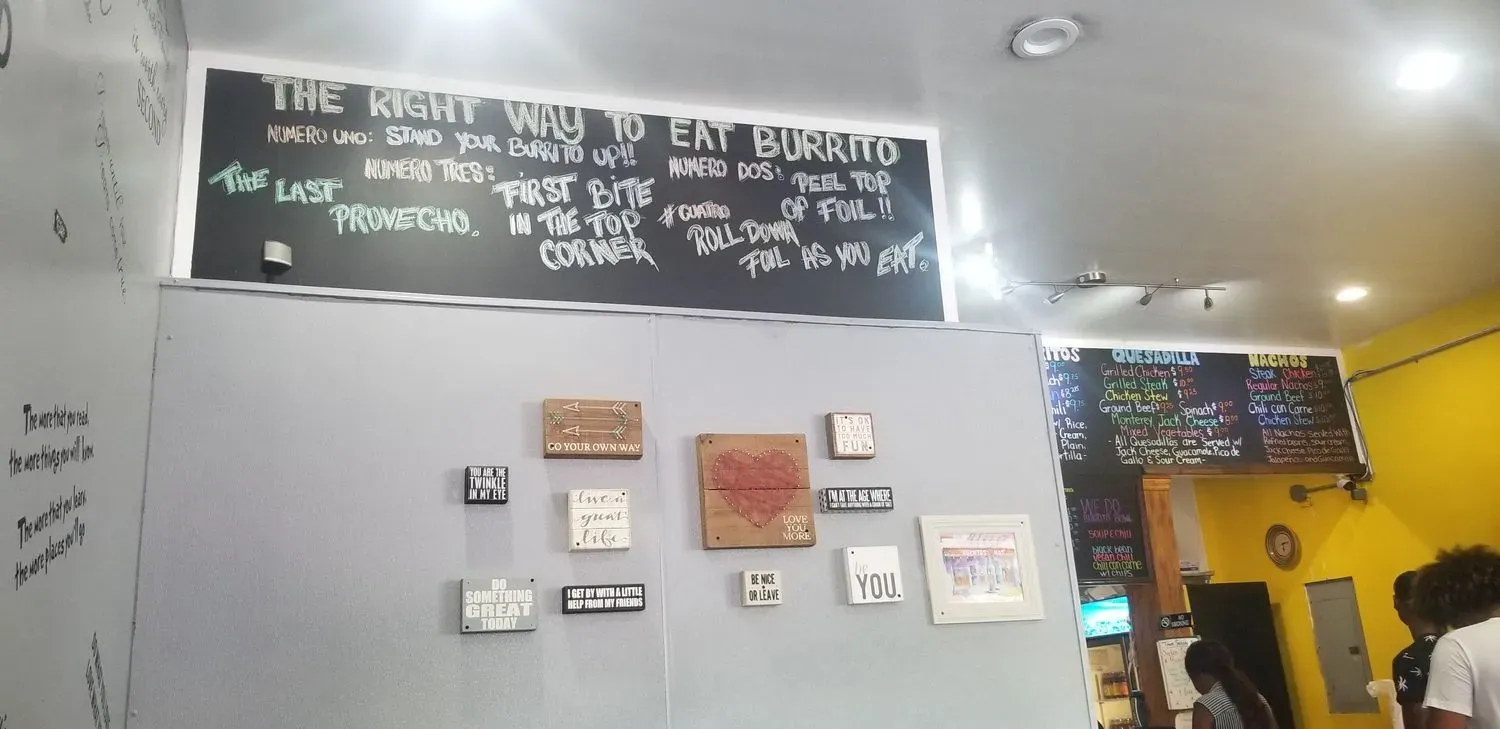 THE RIGHT WAY TO EAT BURRITO
NUMERO UNO: STAND YOUR BURRITO UP!!
NUMERO DOS: PEEL TOP
OF FOIL!!
NUMERO TRES: FIRST BITE
IN THE TOP
CORNER
#CUATRO
ROLL DOWN
FOIL AS YOU EAT.
THE LAST
PROVECHO.
SECOND
The more that you read,
the more things you will know.
The more that you learn,
the more places you'll go
GO YOUR OWN WAY
YOU ARE THE
TWINKLE
IN MY EYE
live a
great
life
DO
SOMETHING
GREAT
TODAY
I GET BY WITH A LITTLE
HELP FROM MY FRIENDS
LOVE
YOU
MORE
IT'S OK
TO HAVE
TOO MUCH
FUN
I'M AT THE AGE WHERE
BE NICE
OR LEAVE
be
YOU.
ITOS
Rice,
Cream,
Plain,
QUESADILLA
Grilled Chicken $9.50
Grilled Steak $10.00
Chicken Stew $9.25
Ground Beef $9.75 Spinach $9.00
Monterey Jack Cheese $8.00
Mixed Vegetables $9.00
All Quesadillas are Served w/
Jack Cheese, Guacamole, Pico de
Gallo & Sour Cream-
NACHOS
Steak Chicken
Regular Nachos $9
Ground Beef $10
Chili con Carne
Chicken Stew
All Nachos served with
Refried beans, sour cream
Jack cheese, Pico de Gallo
Jalapeños and Guacamole
WE DO
SOUP & CHILI
black bean
vegan chili
chili con carne
w/ chips
NO
SMOKING